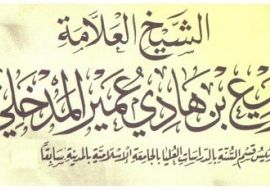 الشيخ العلامة
يع بن هادي عمير المدخلي
ئيس قسم السنة بالدراسات العليا بالجامعة الإسلامية بالمدينة سابقا